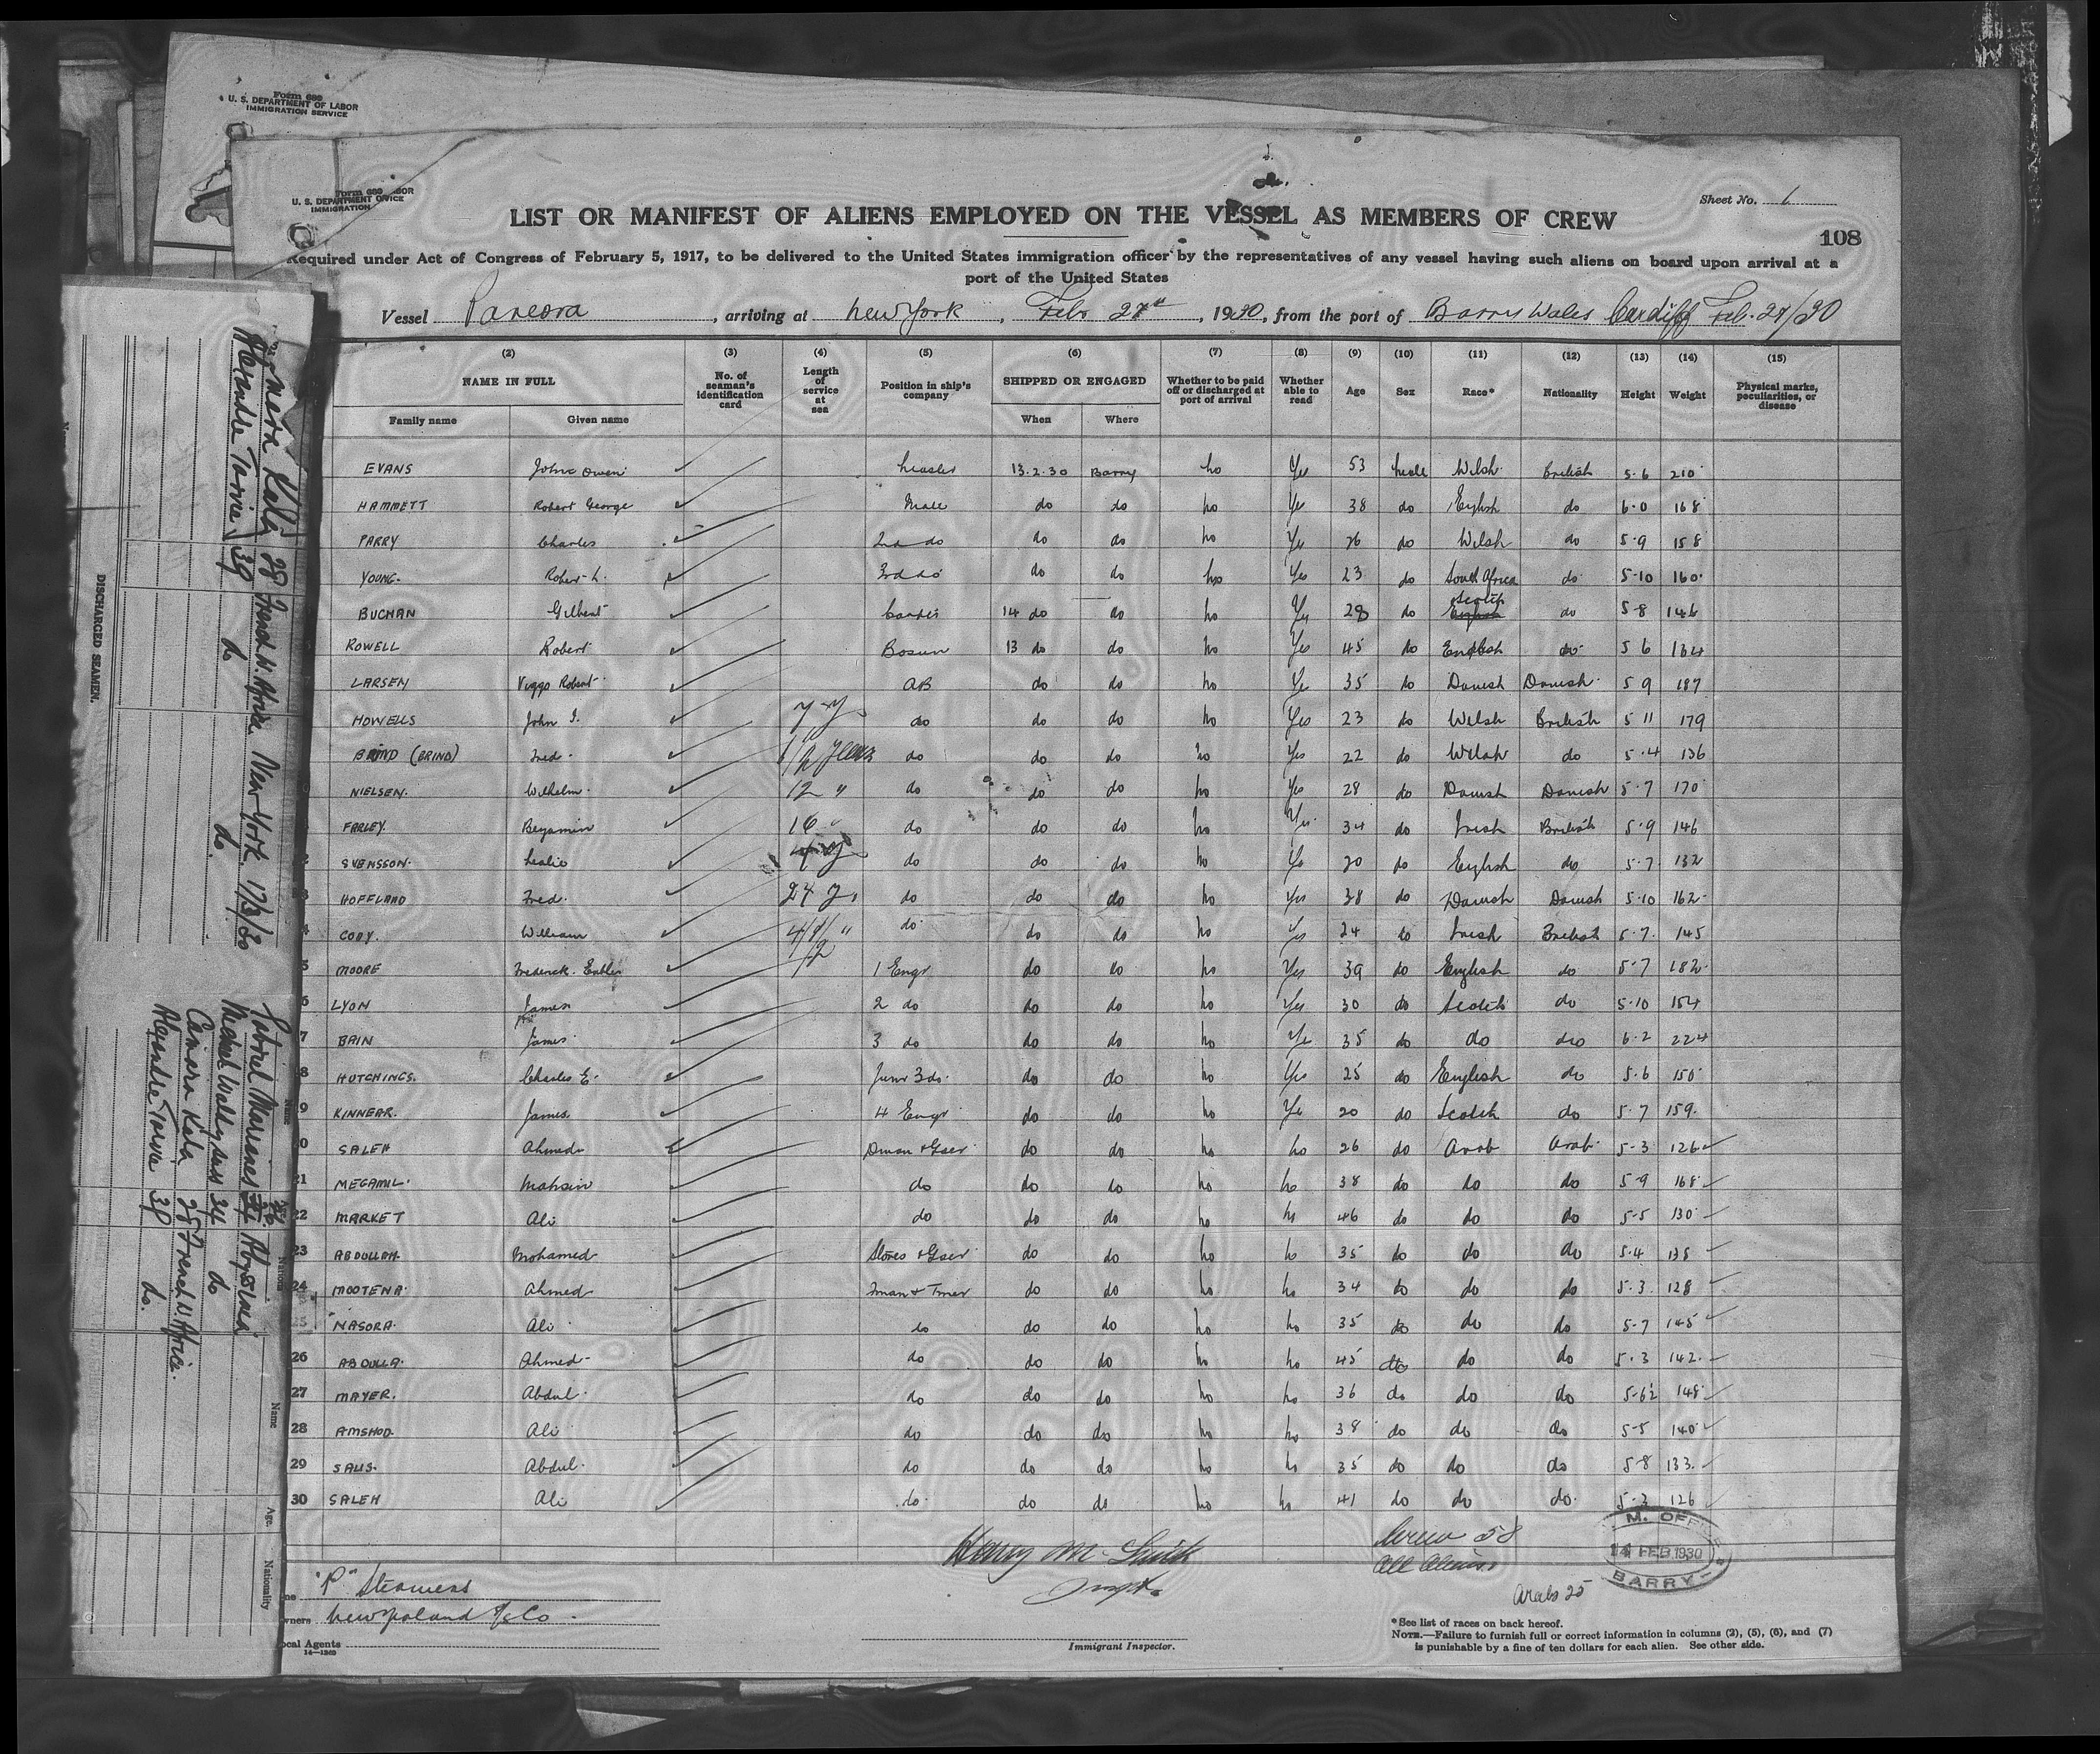 Form 689
U. S. DEPARTMENT OF LABOR
IMMIGRATION SERVICE
Form 689
U. S. DEPARTMENT OF LABOR
IMMIGRATION SERVICE
Sheet No. 1
LIST OR MANIFEST OF ALIENS EMPLOYED ON THE VESSEL AS MEMBERS OF CREW
108
Required under Act of Congress of February 5, 1917, to be delivered to the United States immigration officer by the representatives of any vessel having such aliens on board upon arrival at a
port of the United States
Vessel , arriving at New York , Feb 27th , 1930, from the port of Barry Wales Cardiff Feb. 27/30
(2) (3) (4) (5) (6) (7) (8) (9) (10) (11) (12) (13) (14) (15)
NAME IN FULL No. of seaman's identification card Length of service at sea Position in ship's company SHIPPED OR ENGAGED Whether to be paid off or discharged at port of arrival Whether able to read Age Sex Race* Nationality Height Weight Physical marks, peculiarities, or disease
Family name Given name When Where
EVANS John Owen Master 13.2.30 Barry no Yes 53 male Welsh British 5-6 210
HAMMETT Robert George Mate do do no Yes 38 do English do 6-0 168
PARRY Charles 2nd do do do no Yes 26 do Welsh do 5-9 158
YOUNG Robert L. 3rd do do do no Yes 23 do South Africa do 5-10 160
BUCHAN Gilbert 14 do do no Yes 28 do Scotch do 5-8 146
ROWELL Robert Bosun 13 do do no Yes 45 do English do 5 6 134
LARSEN Viggo Robert AB do do no Yes 35 do Danish Danish 5 9 187
HOWELLS John I. 7 y do do do no Yes 23 do Welsh British 5 11 179
(BRIND) Fred years do do do no Yes 22 do Welsh do 5-4 136
NIELSEN Wilhelm 12 " do do do no Yes 28 do Danish Danish 5-7 170
FARLEY Benjamin 16 " do do do no Yes 34 do Irish British 5-9 146
SVENSSON Leslie do do do no Yes 20 do English do 5-7 132
HOFFLAND Fred. 24 y. do do do no Yes 38 do Danish Danish 5-10 162
CODY William 4 1/2 " do do do no Yes 24 do Irish British 5-7 145
MOORE Frederick 1 Engr do do no Yes 39 do English do 5-7 182
LYON James 2 do do do no Yes 30 do Scotch do 5-10 154
BAIN James 3 do do do no Yes 35 do do do 6-2 224
HUTCHINGS Charles E. Junr 3 do. do do no Yes 25 do English do 5-6 150
KINNEAR James 4 Engr do do no Yes 20 do Scotch do 5-7 159
SALEH Ahmed Dman & Gser do do no no 26 do Arab Arab 5-3 126
21 MEGAMIL Mahsin do do do no no 38 do do do 5-9 168
22 MARKET Ali do do do no no 46 do do do 5-5 130
23 ABDULLAH Mohamed Stores & Gser do do no no 35 do do do 5-4 138
24 MOOTENA Ahmed Fman & Tmer do do no no 34 do do do 5-3 128
25 NASORA Ali do do do no no 35 do do do 5-7 145
26 ABDULLA Ahmed do do do no no 45 do do do 5-3 142
27 MAYER. Abdul do do do no no 36 do do do 5-6½ 148
28 AMSHOD Ali do do do no no 38 do do do 5-5 140
29 SALIS. Abdul do do do no no 35 do do do 5-8 133
30 SALEH Ali do do do no no 41 do do do 5-3 126
Crew 58
All Aliens
Arabs 25
14 FEB 1930
BARRY
"P" Steamers
Local Agents
14—1240
Immigrant Inspector.
*See list of races on back hereof.
NOTE.—Failure to furnish full or correct information in columns (2), (5), (6), and (7)
is punishable by a fine of ten dollars for each alien. See other side.
DISCHARGED SEAMEN.
Kala 28 French W. Africa New York 17/3/30
Alexandre 39 do do.
34 do
Camara Kala 28 French W. Africa.
Alexandre 39 do.
Name
Age
Nationality